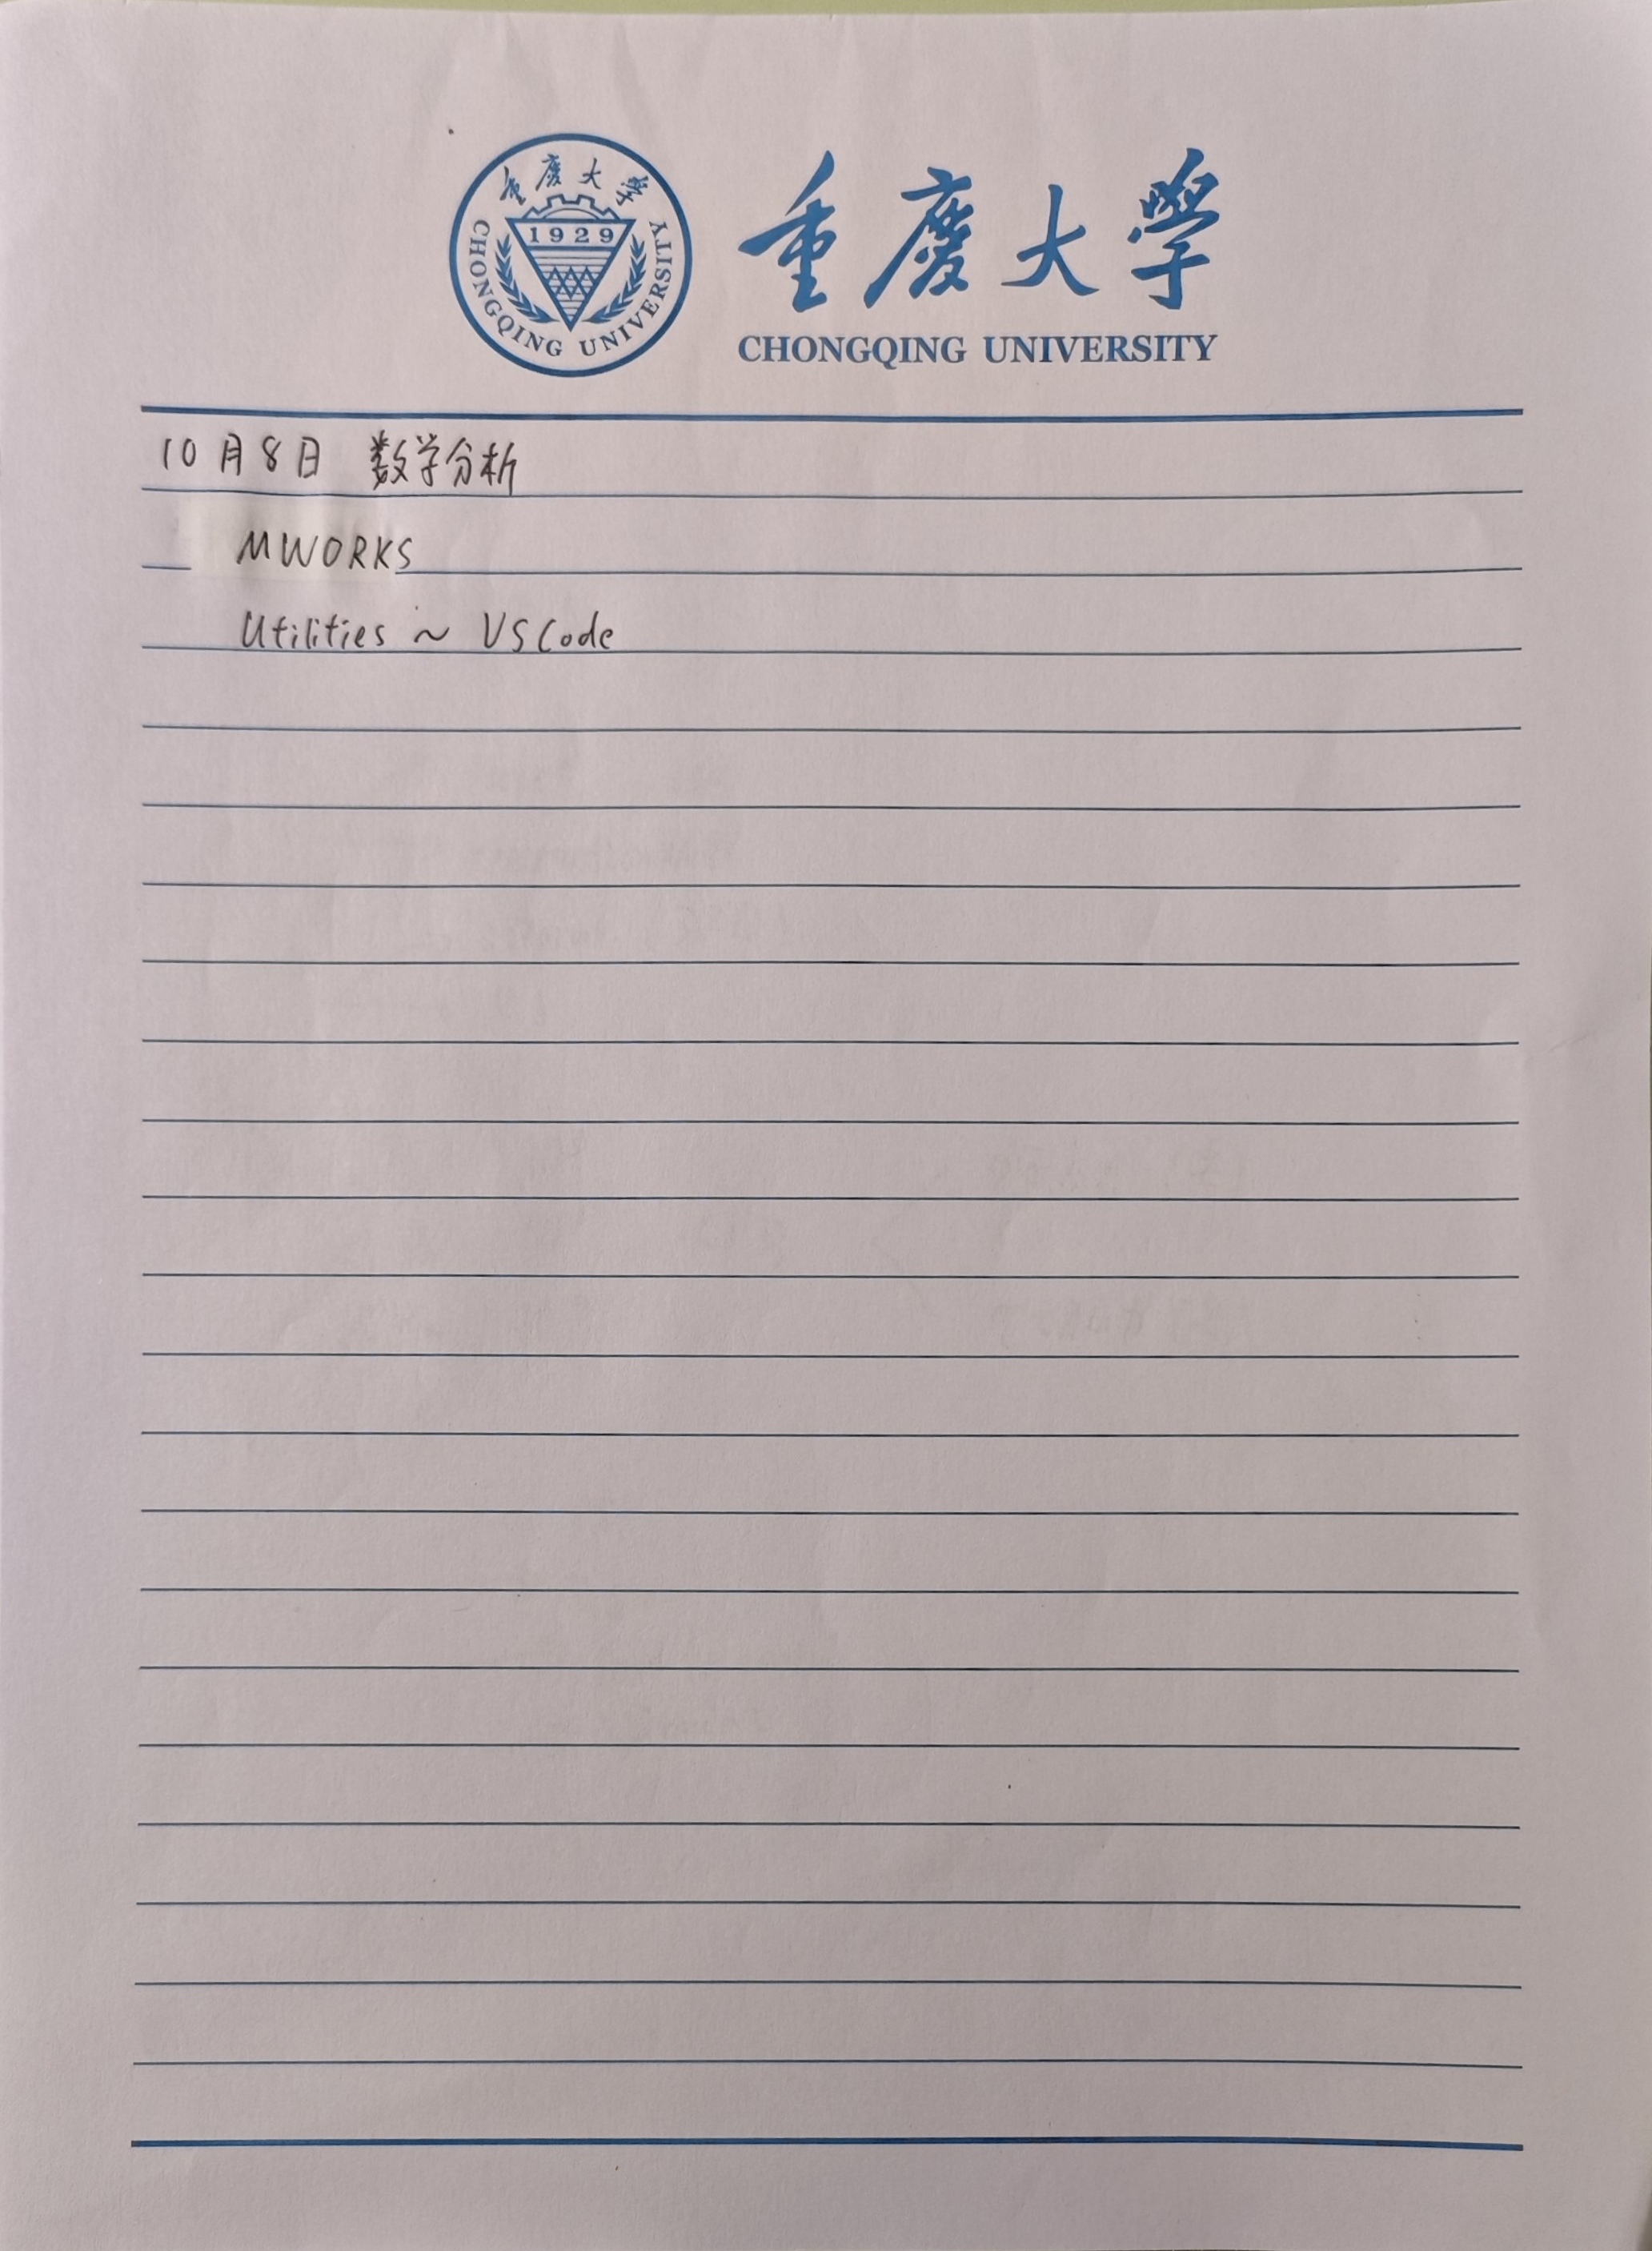 重慶大學
1929
CHONGQING UNIVERSITY
重慶大學
CHONGQING UNIVERSITY
10月8日 数学分析
MWORKS
Utilities ~ VSCode